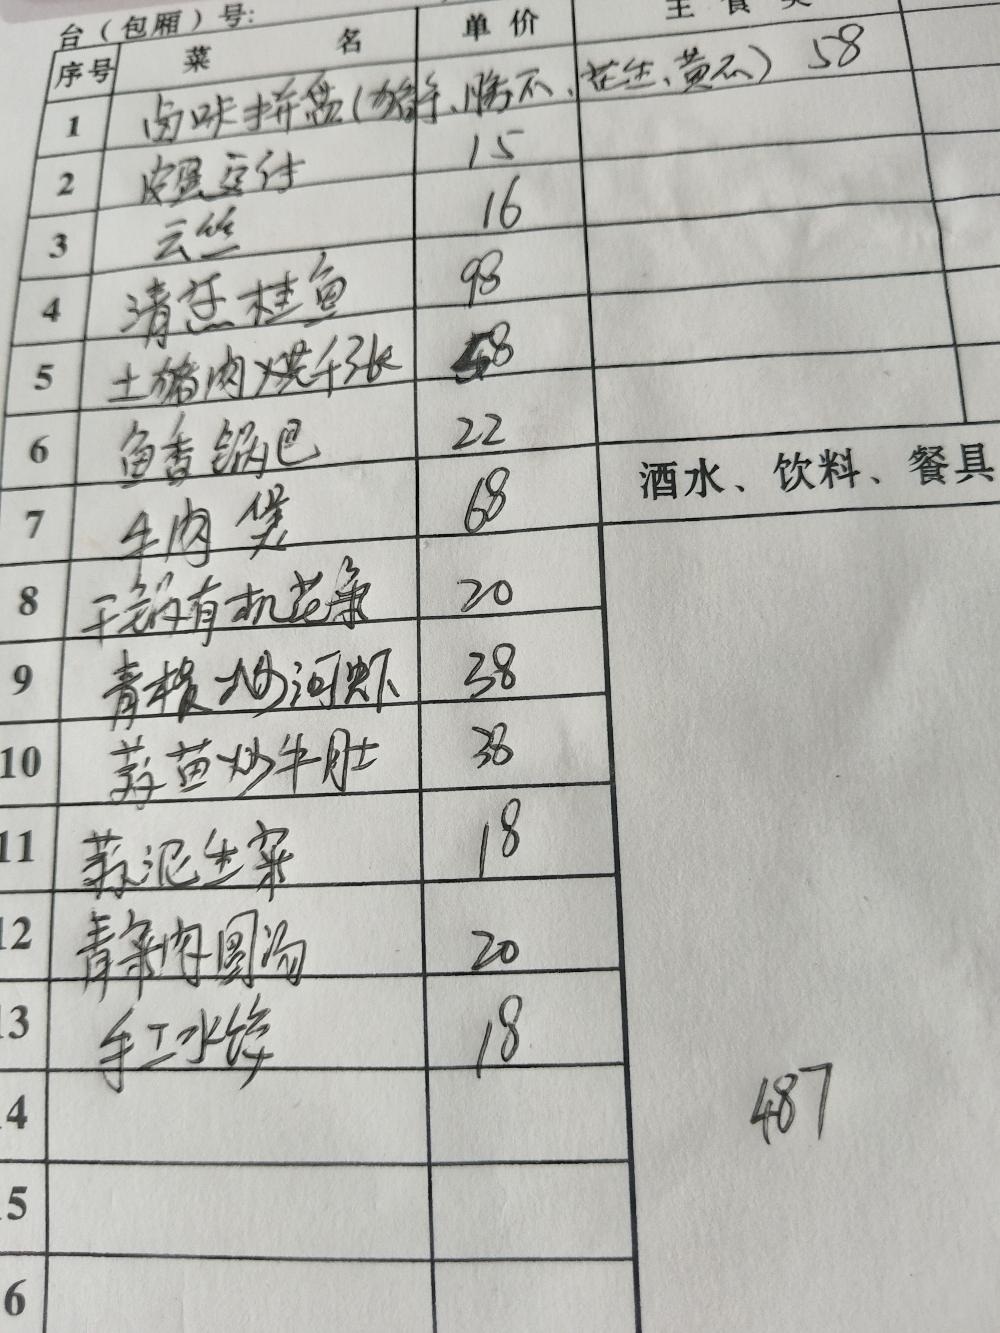 台（包厢）号:
序号 菜 名 单价 主食类
1 卤味拼盘(猪手、肠爪、花生、黄瓜) 58
2 皮蛋豆付 15
3 云丝 16
4 清蒸桂鱼 98
5 土猪肉烧千张 58
6 鱼香锅巴 22
酒水、饮料、餐具
7 牛肉煲 68
8 干锅有机花菜 20
9 青椒炒河虾 38
10 蒜苗炒牛肚 38
11 蒜泥生菜 18
12 青菜肉圆汤 20
13 手工水饺 18
487
14
15
16